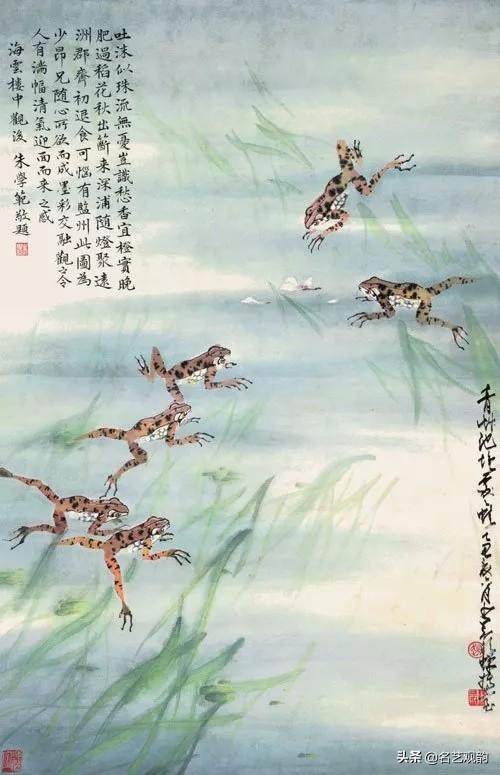 吐沫似珠流無憂豈識愁香宜橙實晚
肥過稻花秋出斷來深浦隨燈聚遠
洲郡齊初退食可惱有監州此圖為
少昂兄隨心所欲而成墨彩交融觀之令
人有滿幅清氣迎面而來之感
海雲樓中觀後 朱學範敬題
青艸池
头条 @名艺观韵